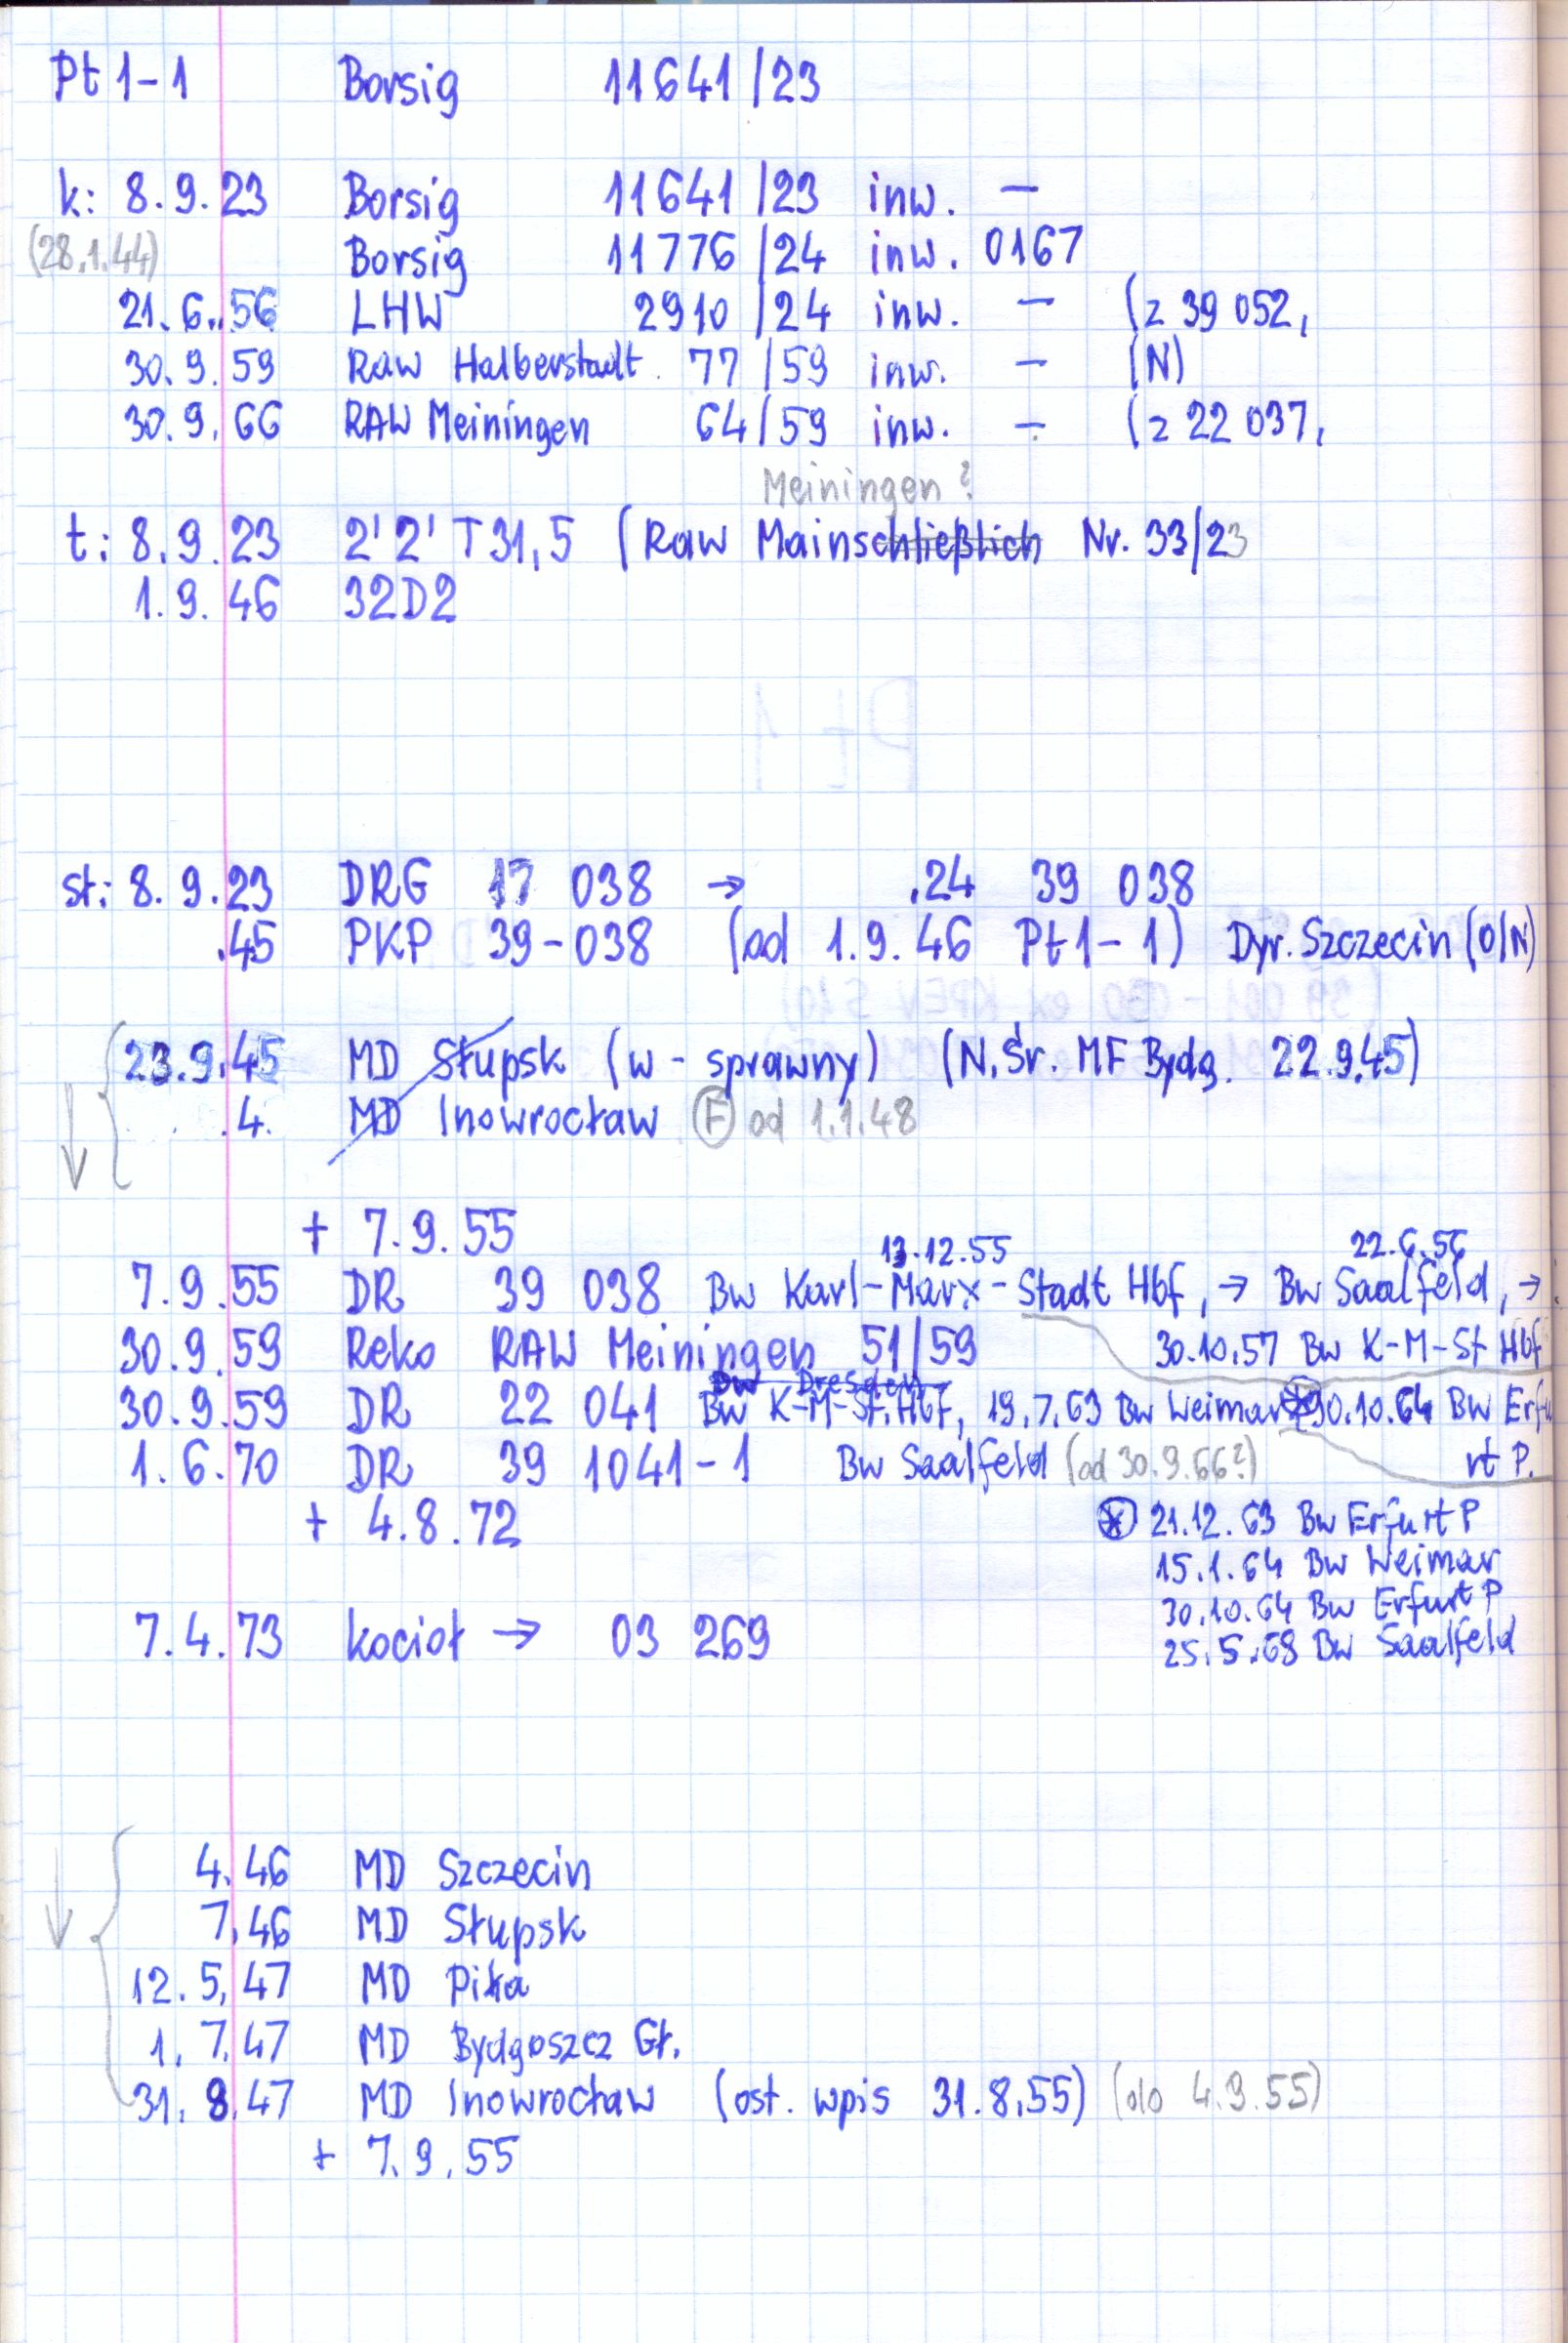 Pt 1-1 Borsig 11641/23
k: 8.9.23 Borsig 11641/23 inw. —
(28.1.44) Borsig 11776/24 inw. 0167
21.6.56 LHW 2910/24 inw. — (z 39 052,
30.9.59 Raw Halberstadt 77/59 inw. — (N)
30.9.66 RAW Meiningen 64/59 inw. — (z 22 037,
Meiningen?
t: 8.9.23 2'2' T31,5 (Raw Mainschließlich Nr. 33/23
1.9.46 32D2
st: 8.9.23 DRG 17 038 → .24 39 038
.45 PKP 39-038 (od 1.9.46 Pt1-1) Dyr. Szczecin (O/N)
23.9.45 MD Słupsk (w - sprawny) (N.Śr. MF Bydg. 22.9.45)
.4. MD Inowrocław (F) od 1.1.48
+ 7.9.55
13.12.55 22.6.56
7.9.55 DR 39 038 Bw Karl-Marx-Stadt Hbf, → Bw Saalfeld, →
30.9.59 Reko RAW Meiningen 51/59 30.10.57 Bw K-M-St Hbf
Bw Dresden
30.9.59 DR 22 041 Bw K-M-St. Hbf, 19.7.63 Bw Weimar * 30.10.64 Bw Erfu
1.6.70 DR 39 1041-1 Bw Saalfeld (od 30.9.66?) rt P.
+ 4.8.72
* 21.12.63 Bw Erfurt P
15.1.64 Bw Weimar
30.10.64 Bw Erfurt P
7.4.73 kocioł → 03 269
25.5.68 Bw Saalfeld
4.46 MD Szczecin
7.46 MD Słupsk
12.5.47 MD Piła
1.7.47 MD Bydgoszcz Gł.
31.8.47 MD Inowrocław (ost. wpis 31.8.55) (do 4.9.55)
+ 7.9.55